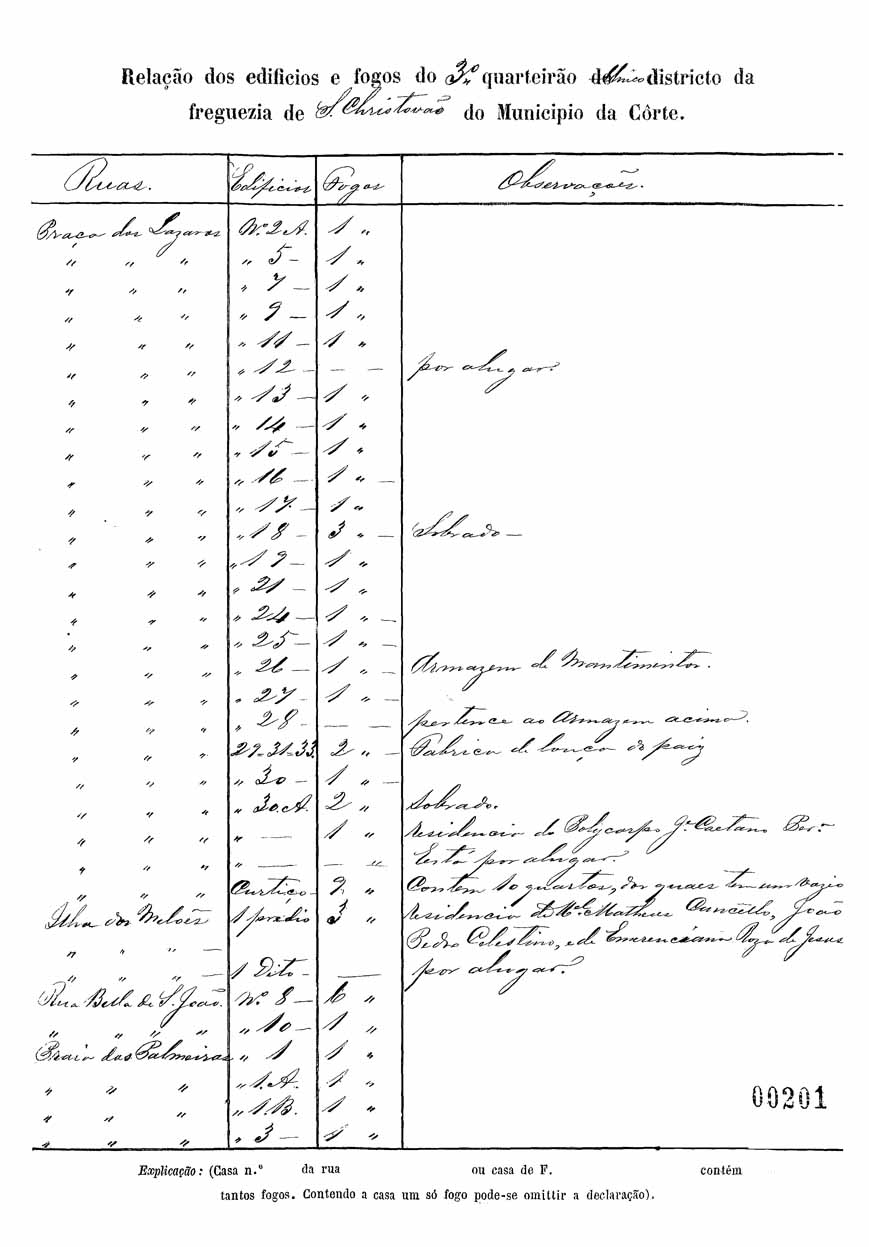 Relação dos edificios e fogos do 3º quarteirão do Unico districto da
freguezia de S. Christovão do Municipio da Côrte.
Ruas. Edificios Fogos Observações.
Praça dos Lazaros Nº 2 A. 1 "
" " " " 5 - 1 "
" " " " 7 - 1 "
" " " " 9 - 1 "
" " " " 11 - 1 "
" " " " 12 - - - por alugar.
" " " " 13 - 1 "
" " " " 14 - 1 "
" " " " 15 - 1 "
" " " " 16 - 1 " -
" " " " 17 - 1 "
" " " " 18 - 3 " - Sobrado -
" " " " 19 - 1 "
" " " " 21 - 1 "
" " " " 24 - 1 " -
" " " " 25 - 1 " -
" " " " 26 - 1 " - Armazem de Mantimentos.
" " " " 27 - 1 " -
" " " " 28 - - - pertence ao Armazem acima.
" " " 29-31-33. 2 " - Fabrica de louça do paiz
" " " " 30 - 1 " -
" " " " 30.A. 2 " Sobrado.
" " " " - 1 " residencia do Polycarpo Je. Caetano Per.ª
" " " " - - " Está por alugar.
" " " Curtiço - 9 " Contem 10 quartos, dos quaes tem um vazio
Ilha dos Melões 1 predio 3 " residencia de Mel. Matheus, João
" " - Pedro Celestino, e de Emerenciana Roza de Jesus
" " " - 1 Dito - - por alugar.
Rua Bella de S. João. Nº 8 - 6 "
" " " " " 10 - 1 "
Praia das Palmeiras " 1 1 "
" " " " 1.A. 1 "
" " " " 1.B. 1 "
" " " " 3 - 1 "
00201
Explicação: (Casa n.º da rua ou casa de F. contém
tantos fogos. Contendo a casa um só fogo pode-se omittir a declaração).